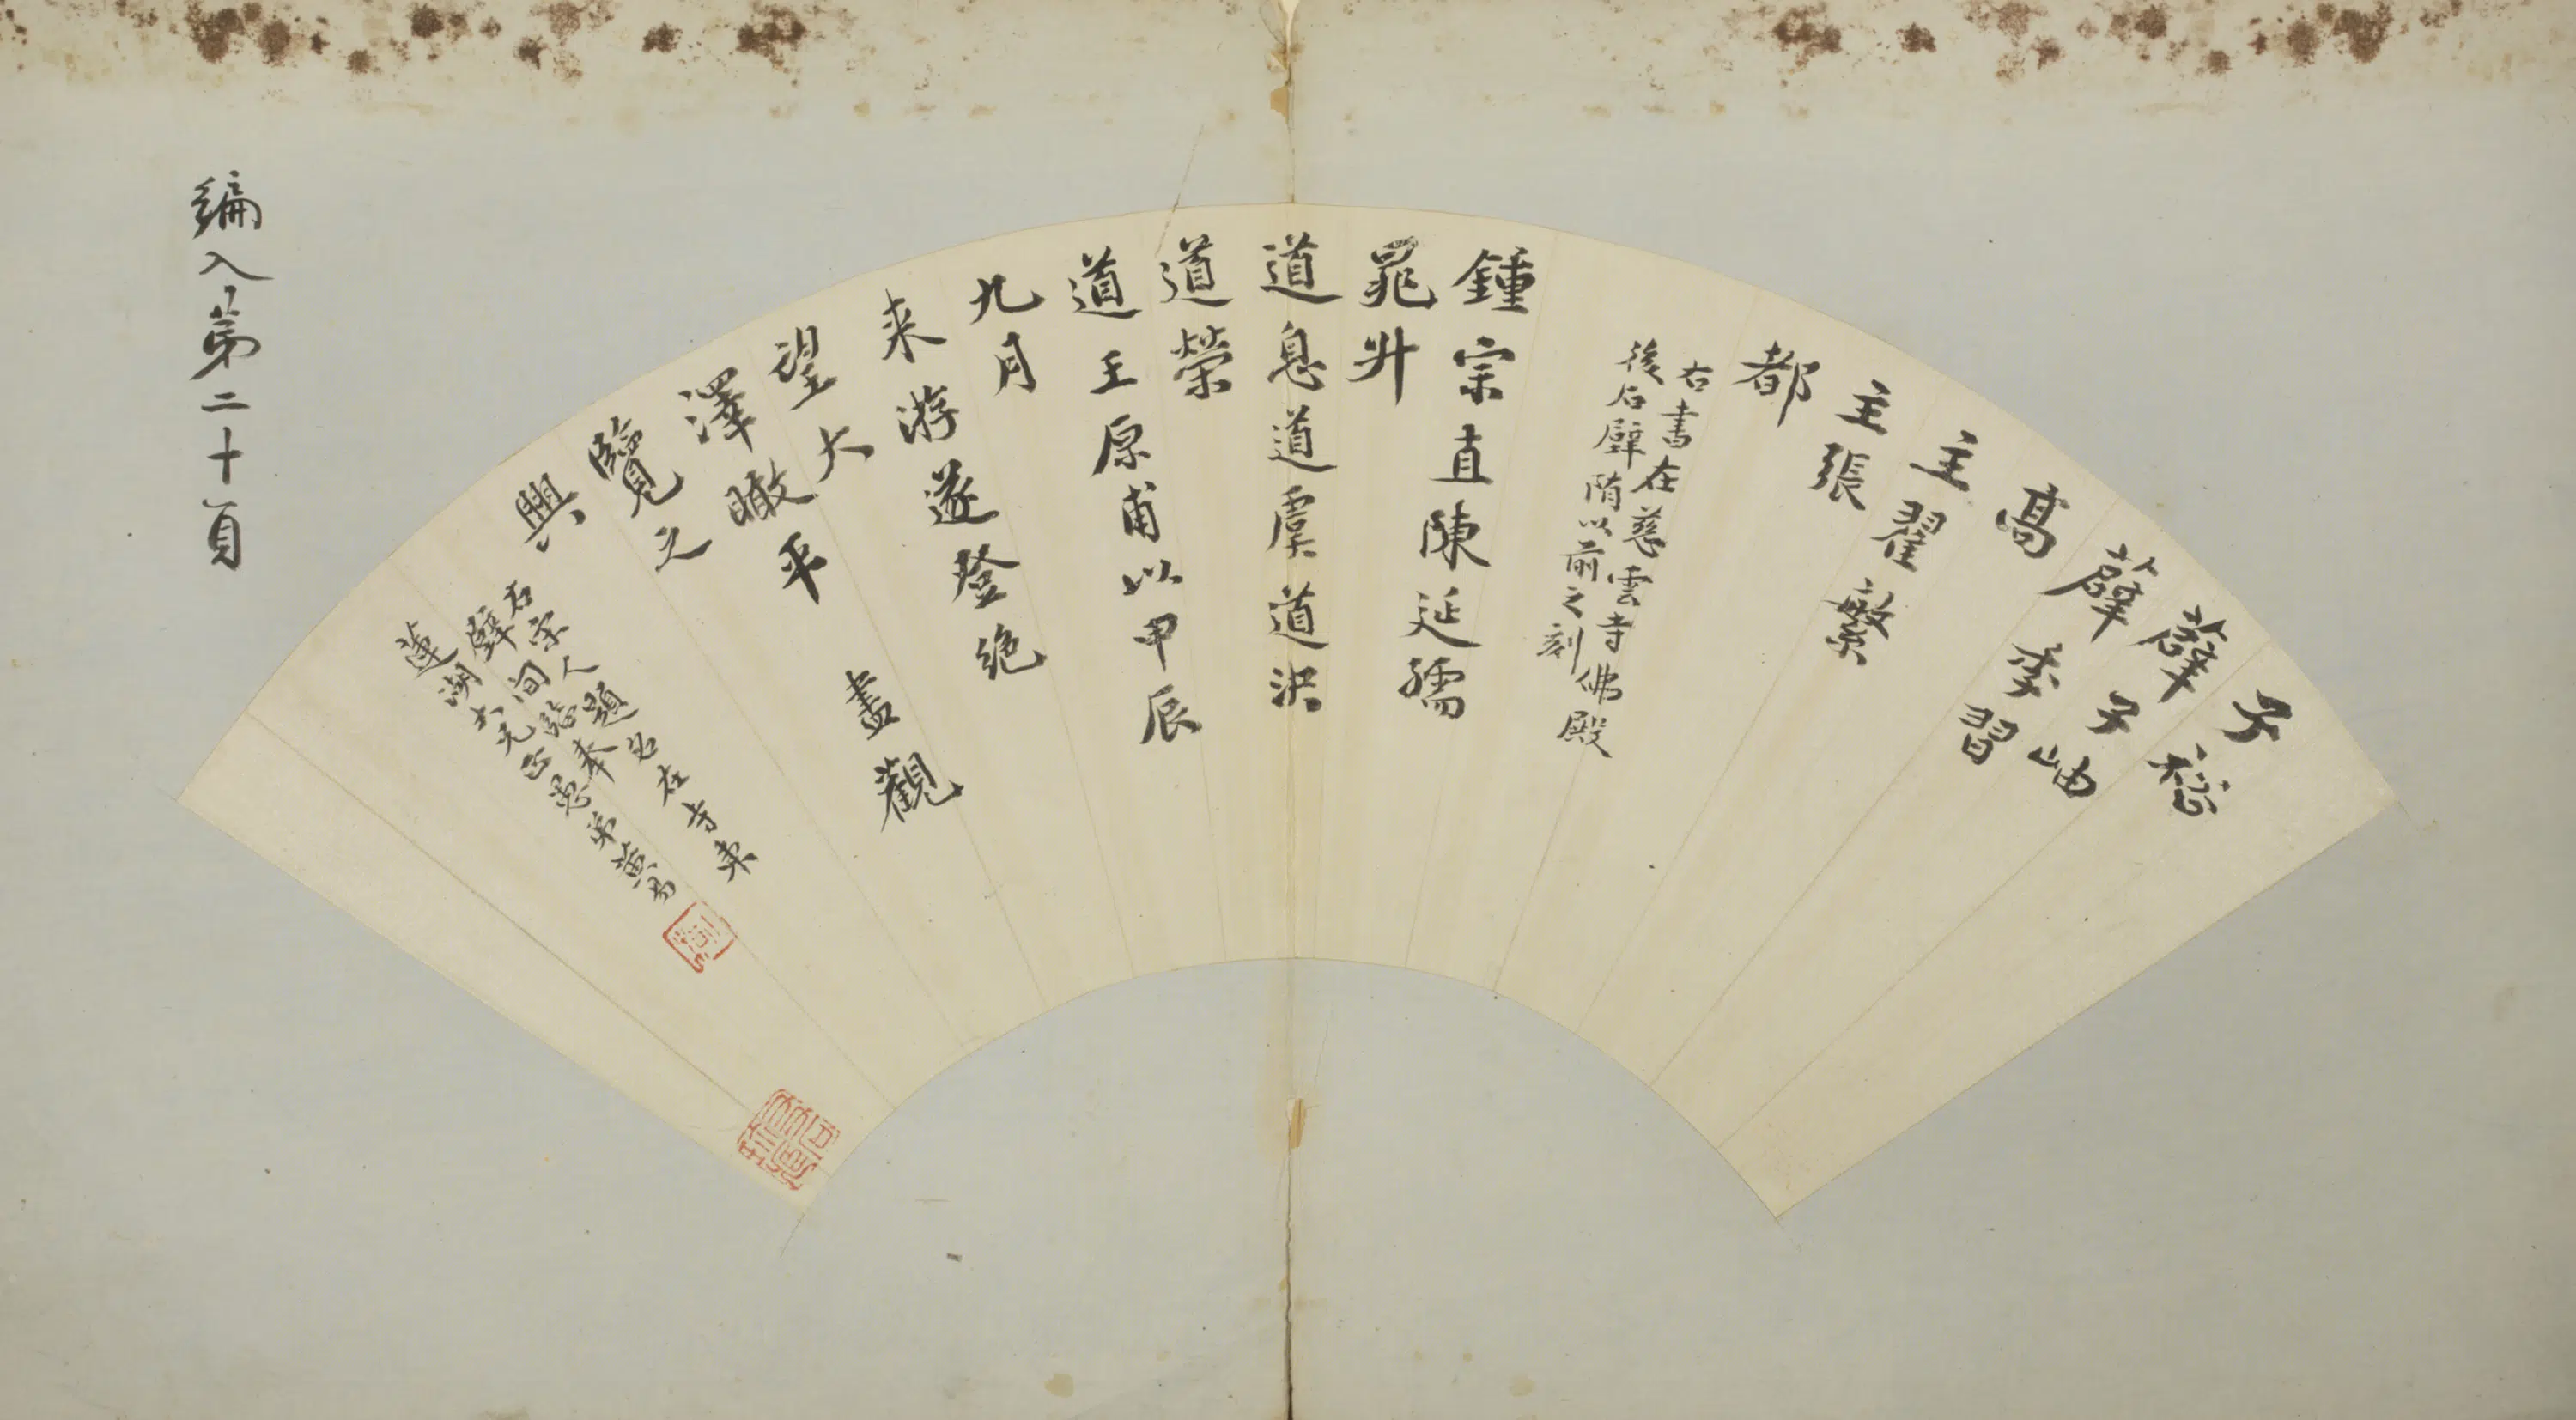 子嵇
薛子岫
薛季習
高
主翟繁
主張
都
右書在慈雲寺佛殿
後石壁隋以前之刻
鍾宗直陳延孺
晁升
道息道虞道洪
道榮
道王原甫以甲辰
九月
来游遂登絶
望大
澤瞰平盡觀
覽之
興
右宋人題名在寺東
壁間臨奉
蓮湖大兄正愚弟黃易
編入第二十頁